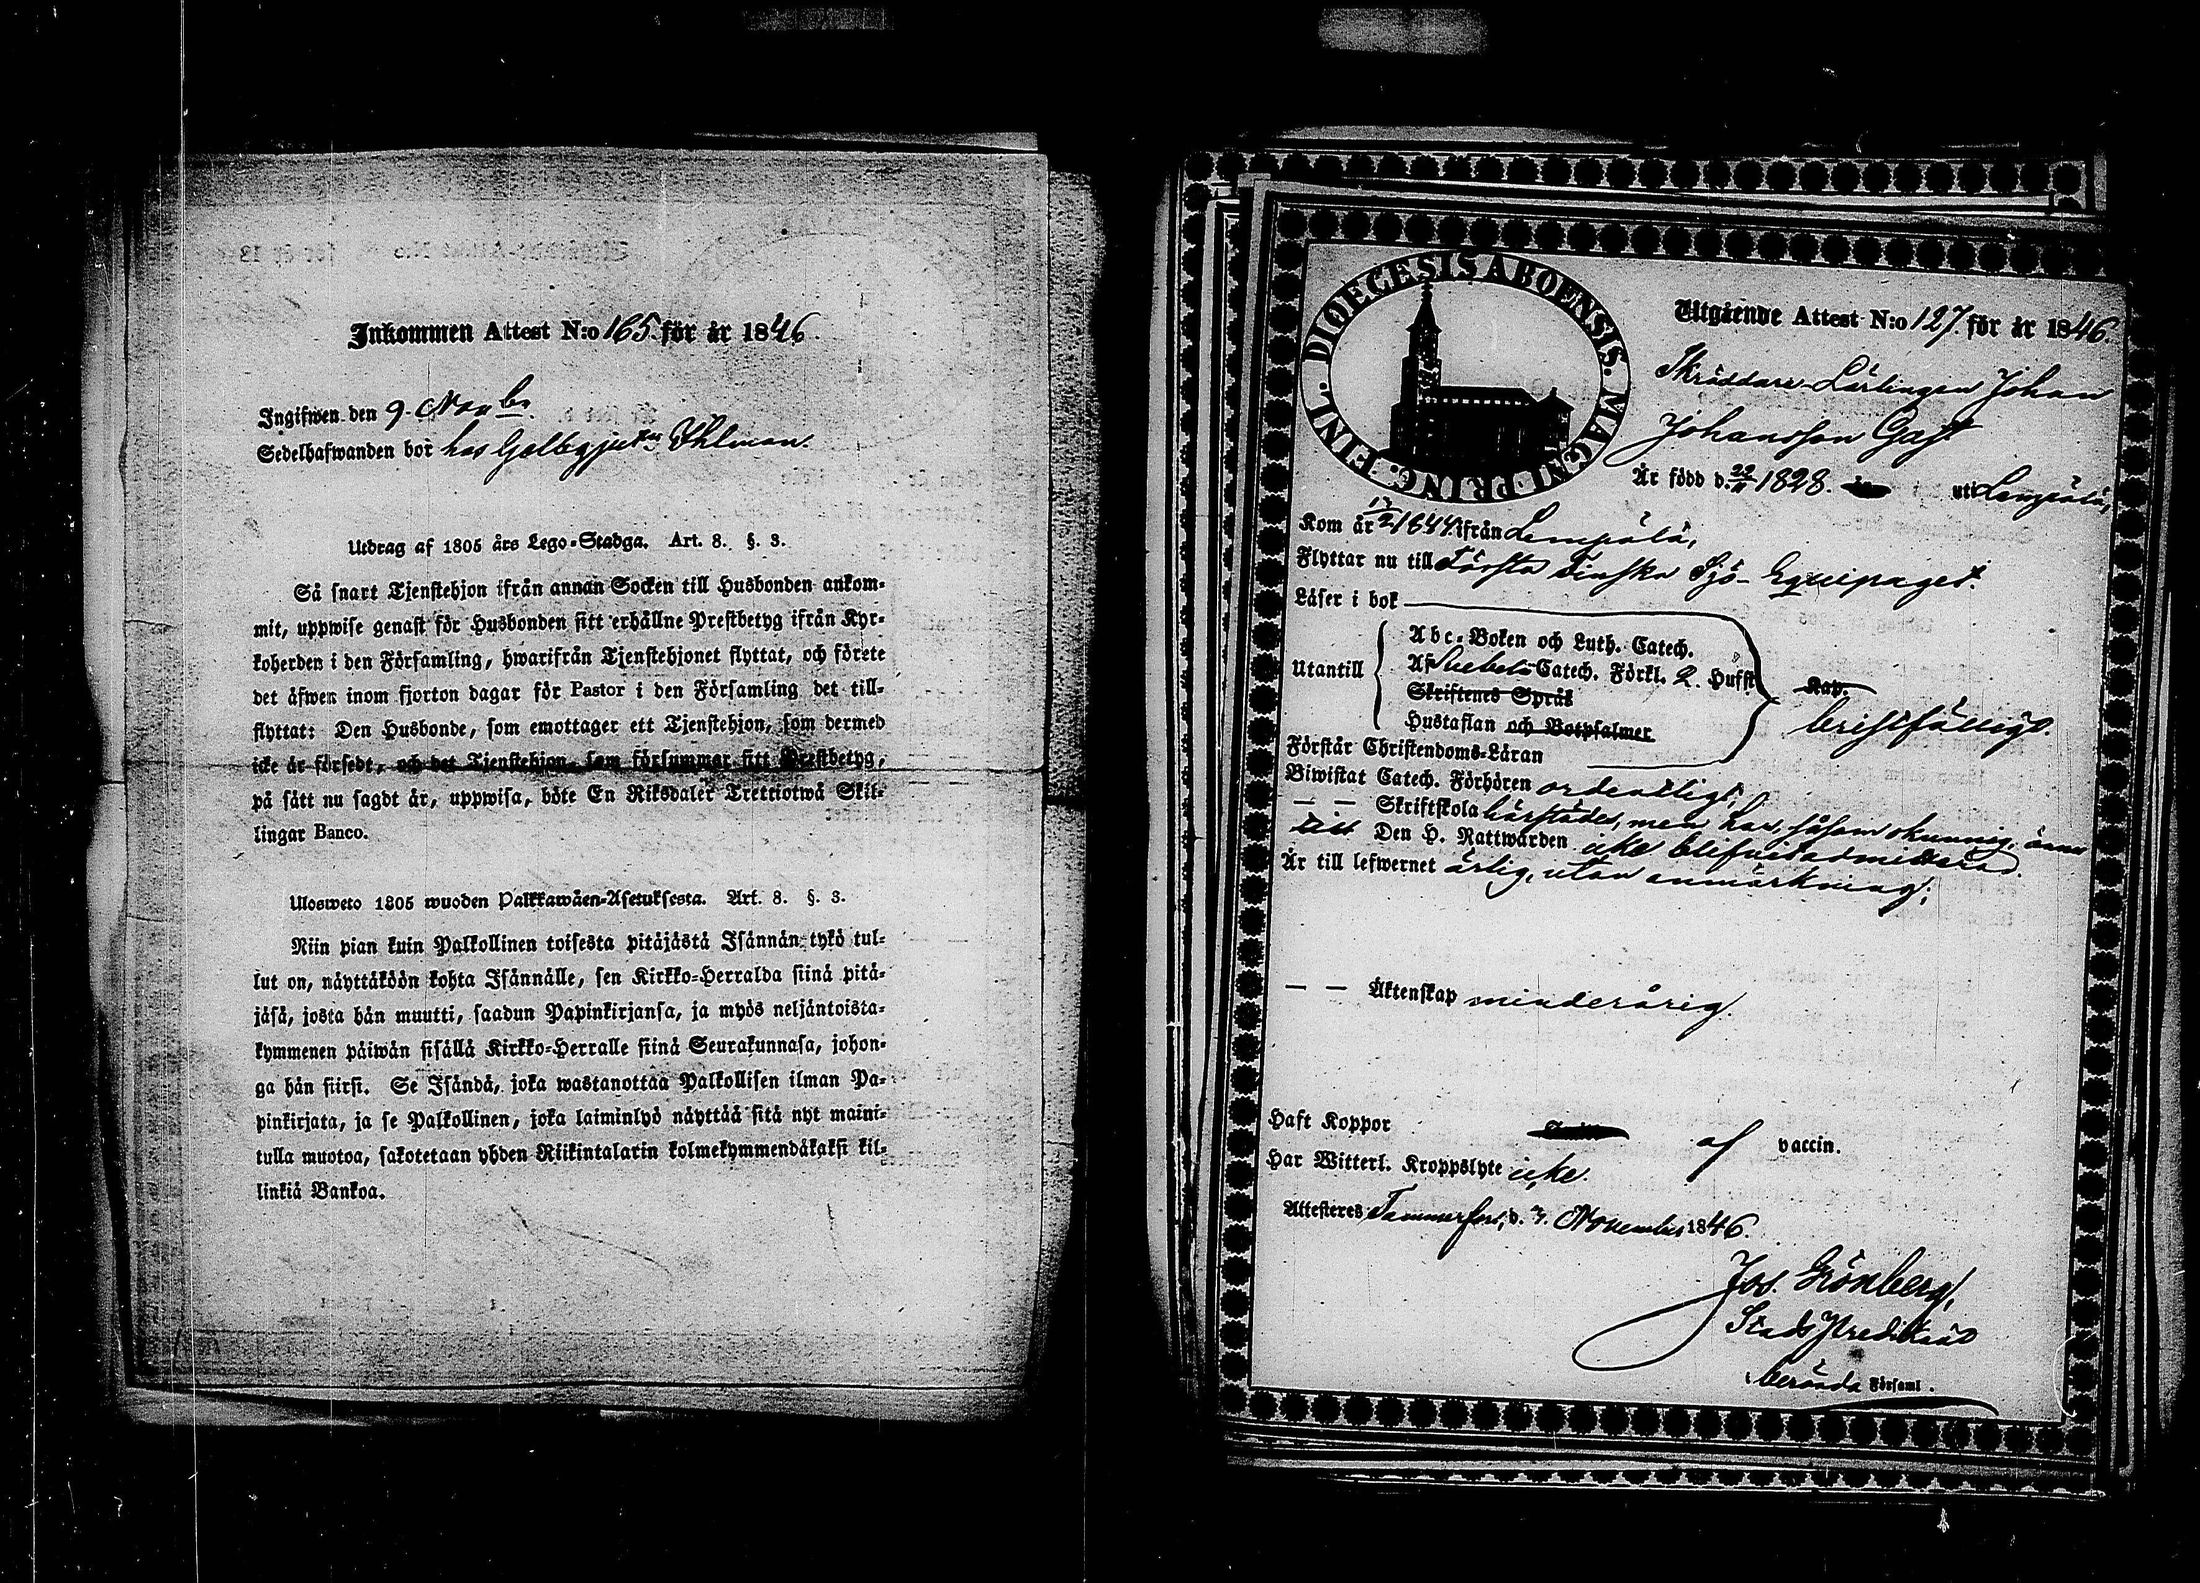 Inkommen Attest N:o 165. för år 1846.
Ingifwen den 9. Novbr
Sedelhafwanden bor hos Gelbgjut Ihlman.
Utdrag af 1805 års Lego-Stadga. Art. 8. §. 3.
Så snart Tjenstehjon ifrån annan Socken till Husbonden ankom-
mit, uppwise genast för Husbonden sitt erhållne Prestbetyg ifrån Kyr-
koherden i den Församling, hwarifrån Tjenstehjonet flyttat, och förete
det äfwen inom fjorton dagar för Pastor i den Församling det till-
flyttat: Den Husbonde, som emottager ett Tjenstehjon, som dermed
icke är försedt, och det Tjenstehjon, som förlummar sitt Prestbetyg,
på sätt nu sagdt är, uppwisa, böte En Riksdaler Trettiotwå Skil-
lingar Banco.
Ulosweto 1805 wuoden Palkkawäen-Asetuksesta. Art. 8. §. 3.
Niin pian kuin Palkollinen toisesta pitäjästä Isännän tykö tul-
lut on, näyttäköön kohta Isännälle, sen Kirkko-Herralda siinä pitä-
jäsä, josta hän muutti, saadun Papinkirjansa, ja myös neljäntoista-
kymmenen päiwän sisällä Kirkko-Herralle siinä Seurakunnasa, johon-
ga hän siirsi. Se Isändä, joka wastanottaa Palkollisen ilman Pa-
pinkirjata, ja se Palkollinen, joka laiminlyö näyttää sitä nyt maini-
tulla muotoa, sakotetaan yhden Riikintalarin kolmekymmendäkaksi kil-
linkiä Bankoa.
DIOECESIS ABOENSIS. MAGNI PRINC. FINL.
Utgående Attest N:o 127. för år 1846.
Skräddare-Lärlingen Johan
Johansson Gast
Är född d. 22/11 1828. uti Lempälä,
Kom år 17/2 1844. ifrån Lempälä,
Flyttar nu till Första Finska Sjö-Equipaget.
Läser i bok
Utantill
Abc-Boken och Luth. Catech.
Af Svebelii Catech. Förkl. 2 Hufst
Skriftenes Språk
Hustaflan och Botpsalmer
Kap.
bristfälligt.
Förstår Christendoms-Läran
Biwistat Catech. Förhören ordentligt,
— — Skriftskola härstädes, men har, såsom okunnig, ännu
till Den H. Nattwarden icke blifvit admitterad.
Är till lefwernet ärlig, utan anmärkning;
— — Äktenskap minderårig.
Haft Koppor af vaccin.
Har Witterl. Kroppslyte icke.
Attesteres Tammerfors, d. 7. November 1846.
Jos. Grönberg,
Stads Predikant
i berörda Församl.